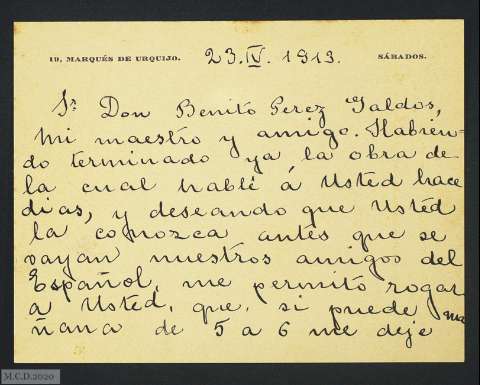 19, MARQUÉS DE URQUIJO. 23.IV.1913. SÁBADOS.
Sr Don Benito Perez Galdos,
Mi maestro y amigo. Habien-
do terminado ya, la obra de
la cual hablé á Usted hace
dias, y deseando que Usted
la conozca antes que se
vayan nuestros amigos del
Español, me permito rogar
a Usted, que, si puede ma
ñana de 5 a 6 me deje
M.C.D.2020